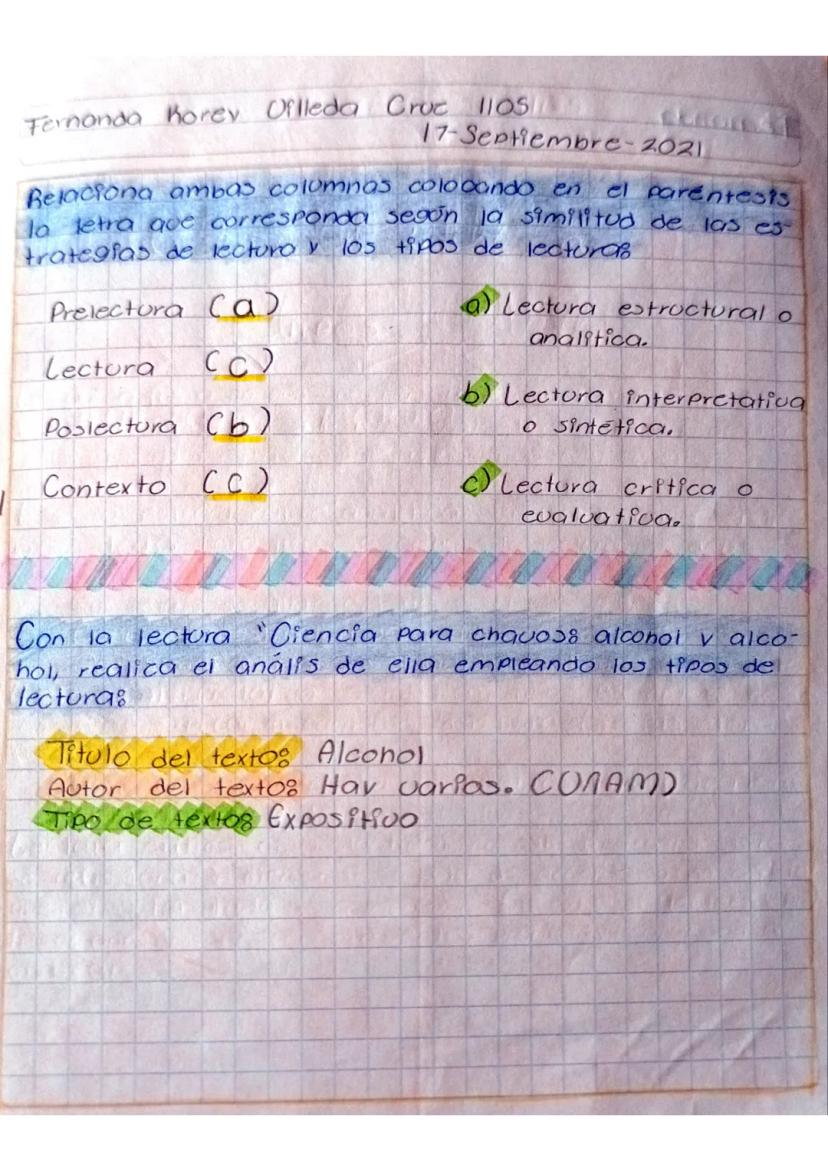 Fernanda Korey Villeda Cruz 1105
17-Septiembre-2021
Relaciona ambas columnas colocando en el paréntesis
la letra que corresponda según la similitud de las es-
trategias de lectura y los tipos de lectura:
Prelectura (a)
a) Lectura estructural o
analítica.
Lectura (c)
b) Lectura interpretativa
o sintética.
Poslectura (b)
Contexto (c)
c) Lectura crítica o
evaluativa.
Con la lectura "Ciencia para chavos: alcohol y alco-
hol, realiza el anális de ella empleando los tipos de
lectura:
Título del texto: Alcohol
Autor del texto: Hay varias. (UNAM)
Tipo de texto: Expositivo